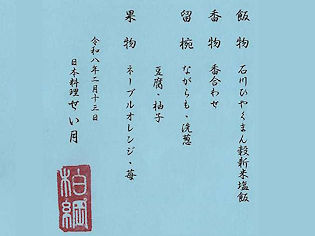 飯物 石川ひゃくまん穀新米塩飯
香物 香合わせ
留椀 ながらも・洗葱
豆腐・柚子
果物 ネーブルオレンジ・苺
令和八年二月十三日
日本料理 せい月
柏綱